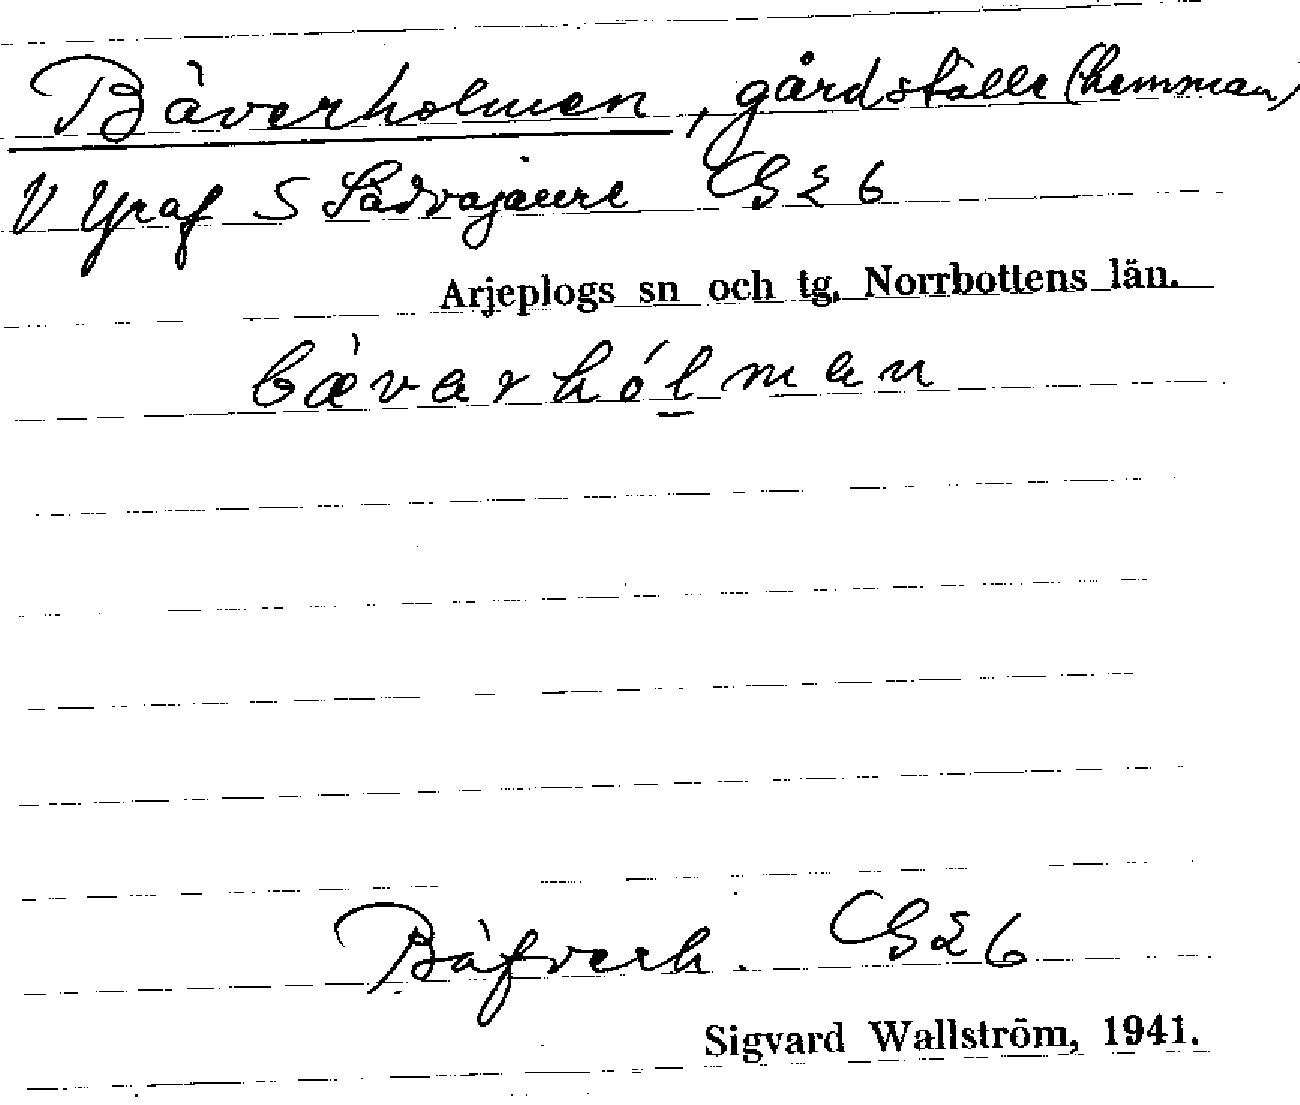 Bäverholmen, gårdställe (hemman)
V Yraf S Sädvajaure GE 6
Arjeplogs sn och tg, Norrbottens län.
bæ̀varhólman
Bäfverh. GE 6
Sigvard Wallström, 1941.